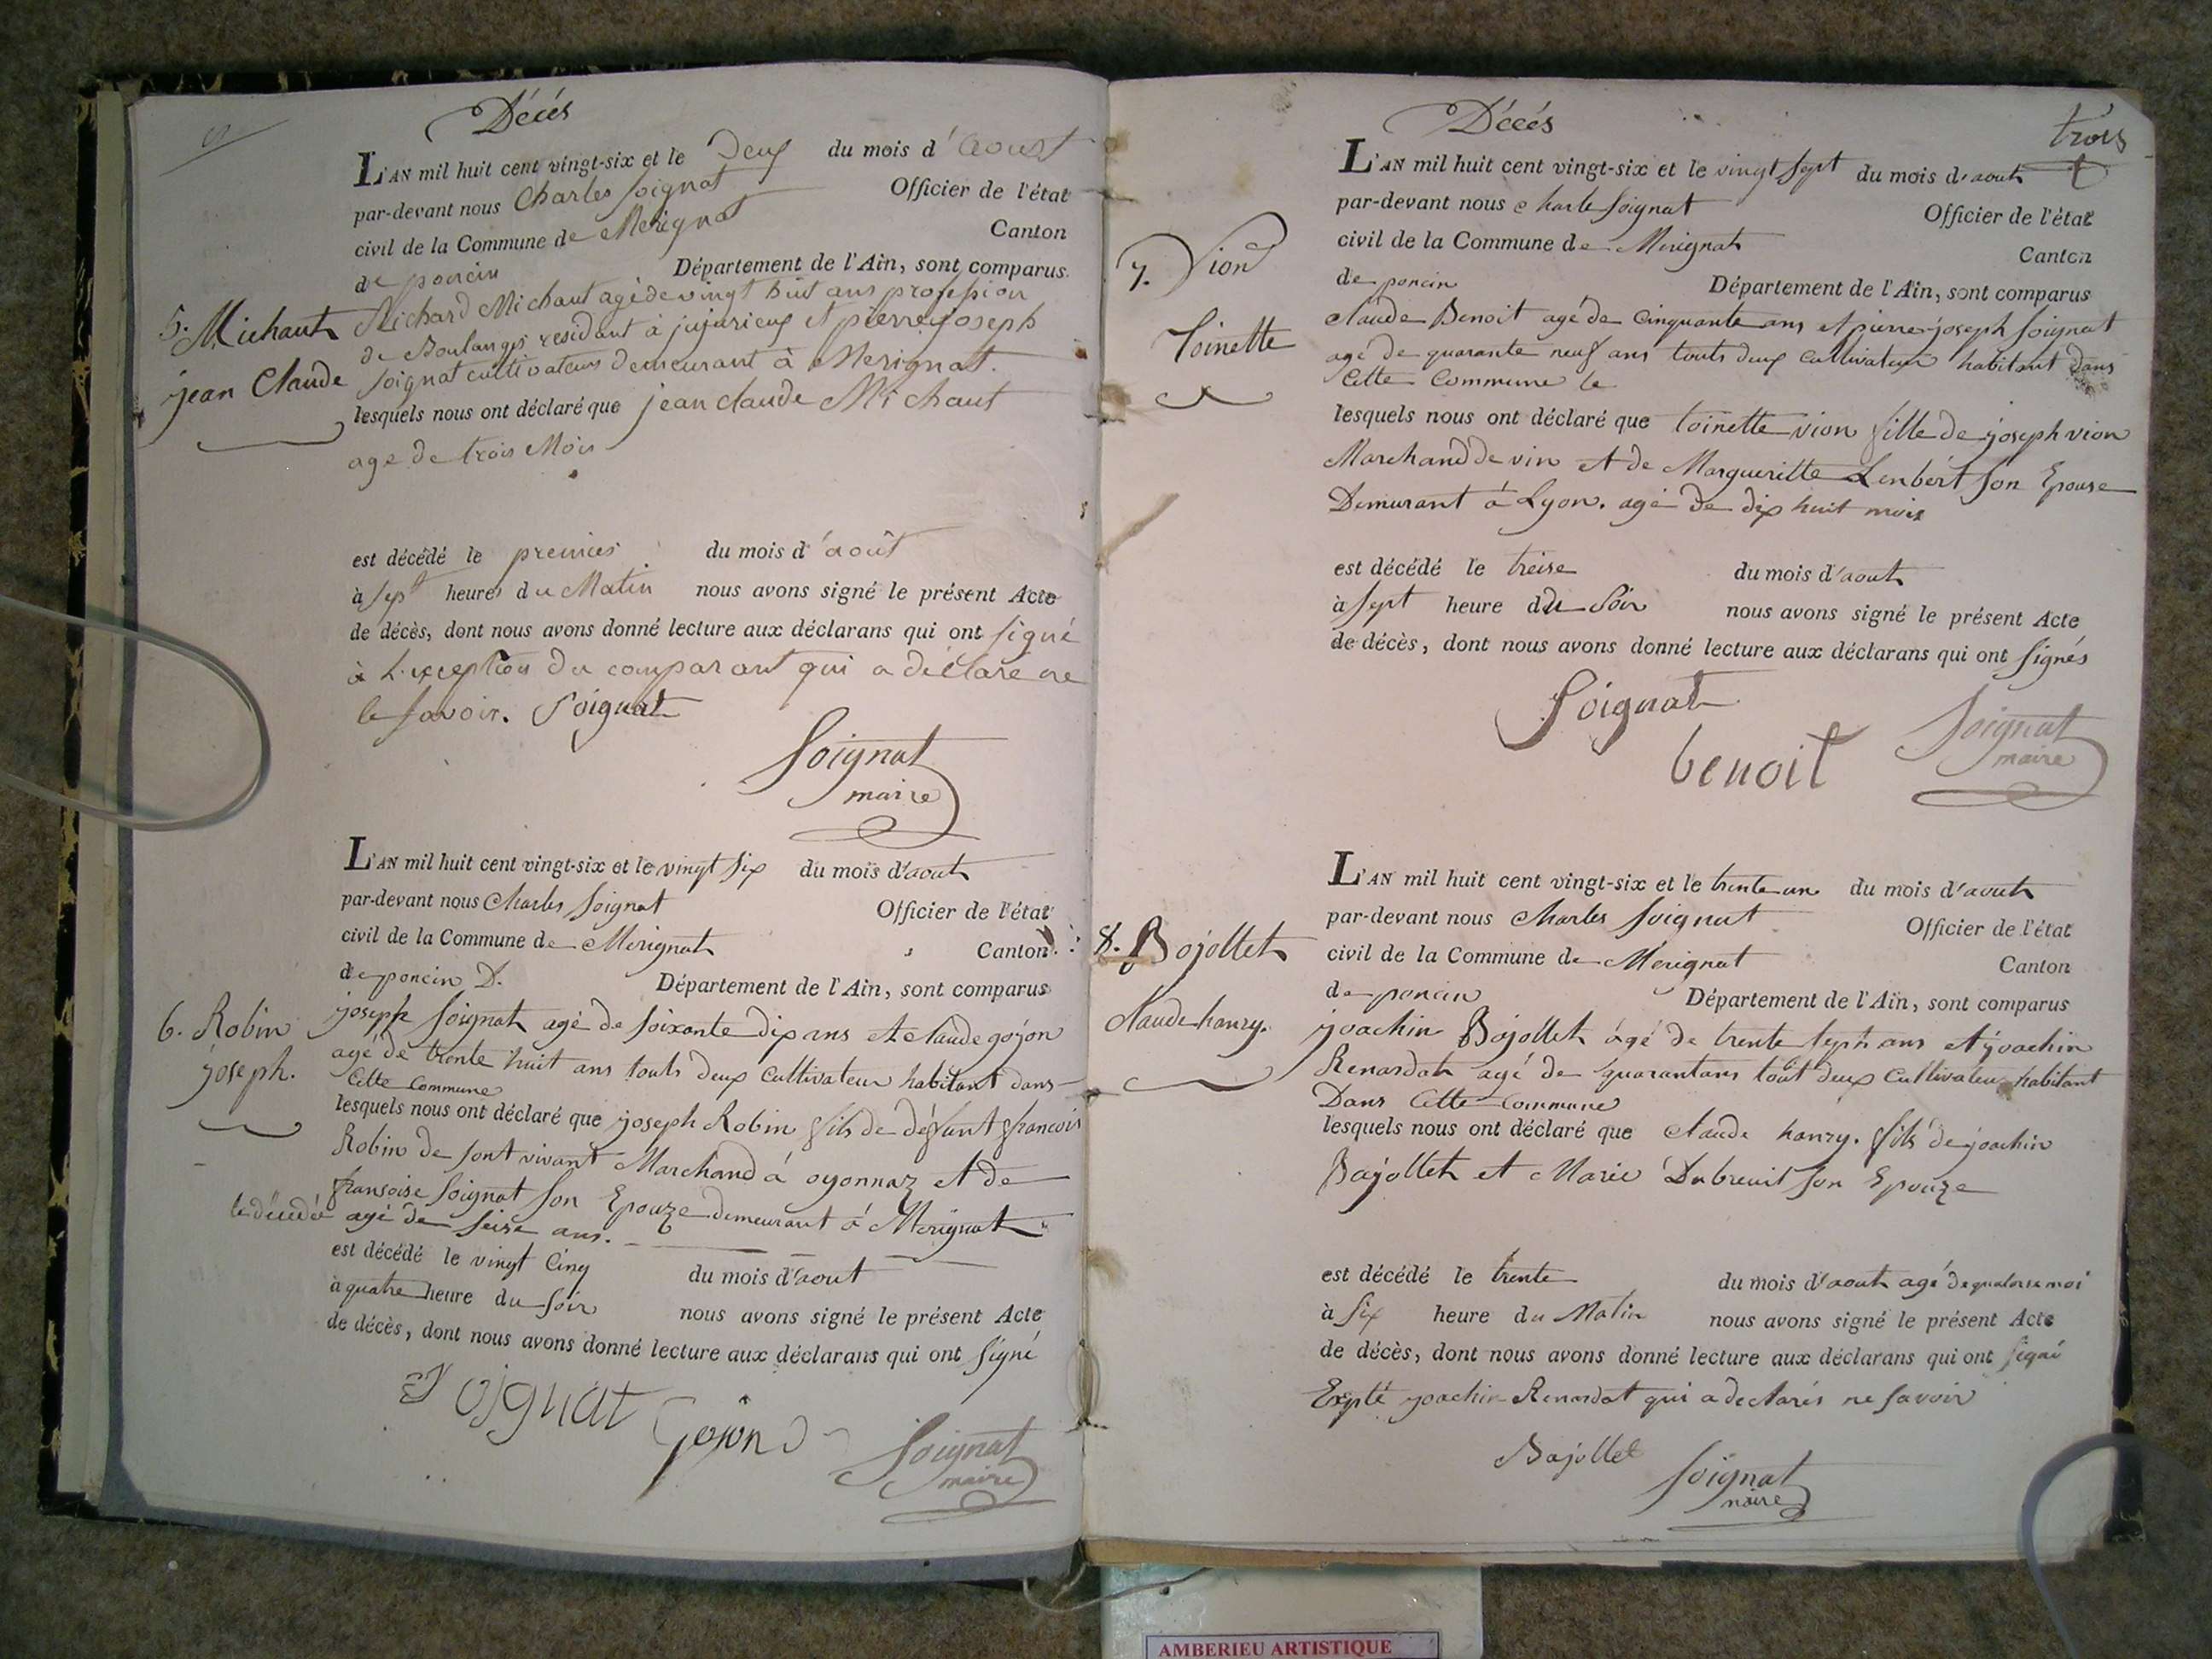 Décés
L'AN mil huit cent vingt-six et le Deux du mois d'aoust
par-devant nous Charles Soignat Officier de l'état
civil de la Commune de Merignat Canton
de poncin Département de l'Ain, sont comparus
5. Michaut
jean Claude
Richard Michaut agé de vingt huit ans profession
de Boulanger residant à jujurieux et pierre joseph
Soignat cultivateurs demeurant à Merignat.
lesquels nous ont déclaré que jean claude Michaut
age de trois Mois
est décédé le premier du mois d'août
à sept heures du Matin nous avons signé le présent Acte
de décès, dont nous avons donné lecture aux déclarans qui ont signé
à L'exception du comparant qui a déclaré ne
le savoir. Soignat
Soignat
maire
L'AN mil huit cent vingt-six et le vingt six du mois d'aout
par-devant nous Charles Soignat Officier de l'état
civil de la Commune de Merignat Canton
de poncin D. Département de l'Ain, sont comparus
6. Robin
joseph.
joseph Soignat agé de soixante dix ans et claude gojon
agé de trente huit ans touts deux Cultivateur habitant dans
Cette Commune
lesquels nous ont déclaré que joseph Robin fils de défunt francois
Robin de sont vivant Marchand à oyonnaz et de
fransoise Soignat son Epouze demeurant à Merignat
le décédé agé de seize ans.
est décédé le vingt Cinq du mois d'aout
à quatre heure du soir nous avons signé le présent Acte
de décès, dont nous avons donné lecture aux déclarans qui ont signé
Soignat
Gojon
Soignat
maire
Décés
trois
L'AN mil huit cent vingt-six et le vingt sept du mois d'aout
par-devant nous Charle Soignat Officier de l'état
civil de la Commune de Merignat Canton
de poncin Département de l'Ain, sont comparus
7. Vion
Toinette
claude Benoit agé de Cinquante ans et pierre joseph Soignat
agé de quarante neuf ans touts deux cultivateur habitant dans
Cette Commune le
lesquels nous ont déclaré que toinette vion fille de joseph vion
Marchand de vin et de Margueritte Lenbért son Epouse
Demurant à Lyon. agé de dix huit mois
est décédé le treise du mois d'aout
à sept heure du Soir nous avons signé le présent Acte
de décès, dont nous avons donné lecture aux déclarans qui ont signés
Soignat
benoit
Soignat
maire
L'AN mil huit cent vingt-six et le trente un du mois d'aout
par-devant nous Charles Soignat Officier de l'état
civil de la Commune de Merignat Canton
de poncin Département de l'Ain, sont comparus
8. Bojollet
claude hanry.
joachin Bojollet agé de trente sept ans et joachin
Renardat agé de quarantans tout deux Cultivateur habitant
Dans Cette Commune
lesquels nous ont déclaré que claude hanry. fils de joachin
Bajollet et Marie Dubreuit son Epouze
est décédé le trente du mois d'aout agé de quatorse moi
à six heure du Matin nous avons signé le présent Acte
de décès, dont nous avons donné lecture aux déclarans qui ont signé
Expté joachin Renardat qui a declarés ne savoir
Bajollet
Soignat
maire
AMBERIEU ARTISTIQUE